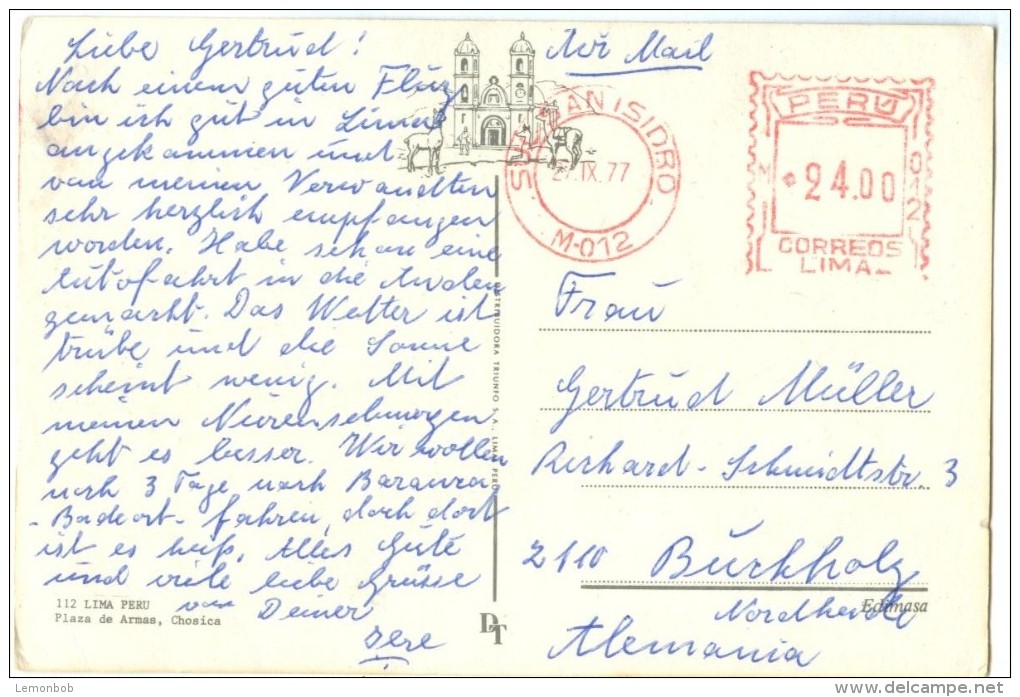 Liebe Gertrud!
Nach einem guten Flug
bin ich gut in Lima
angekommen und
von meinen Verwandten
sehr herzlich empfangen
worden. Habe schon eine
Autofahrt in die Anden
gemacht. Das Wetter ist
trübe und die Sonne
scheint wenig. Mit
meinen Nierenschmerzen
geht es besser. Wir wollen
noch 3 Tage nach
-Badeort- fahren, doch dort
ist es heiß. Alles Gute
und viele liebe Grüsse
von Deiner
112 LIMA PERU
Plaza de Armas, Chosica
DISTRIBUIDORA TRIUNFO S.A. LIMA PERU
DT
Air Mail
SAN ISIDRO
27.IX.77
M-012
PERU
M 012
24.00
CORREOS
LIMA
Frau
Gertrud Müller
Richard-Schmidtstr. 3
2110 Buchholz
Nordheide
Edimasa
Alemania
Lemonbob
www.delcampe.net